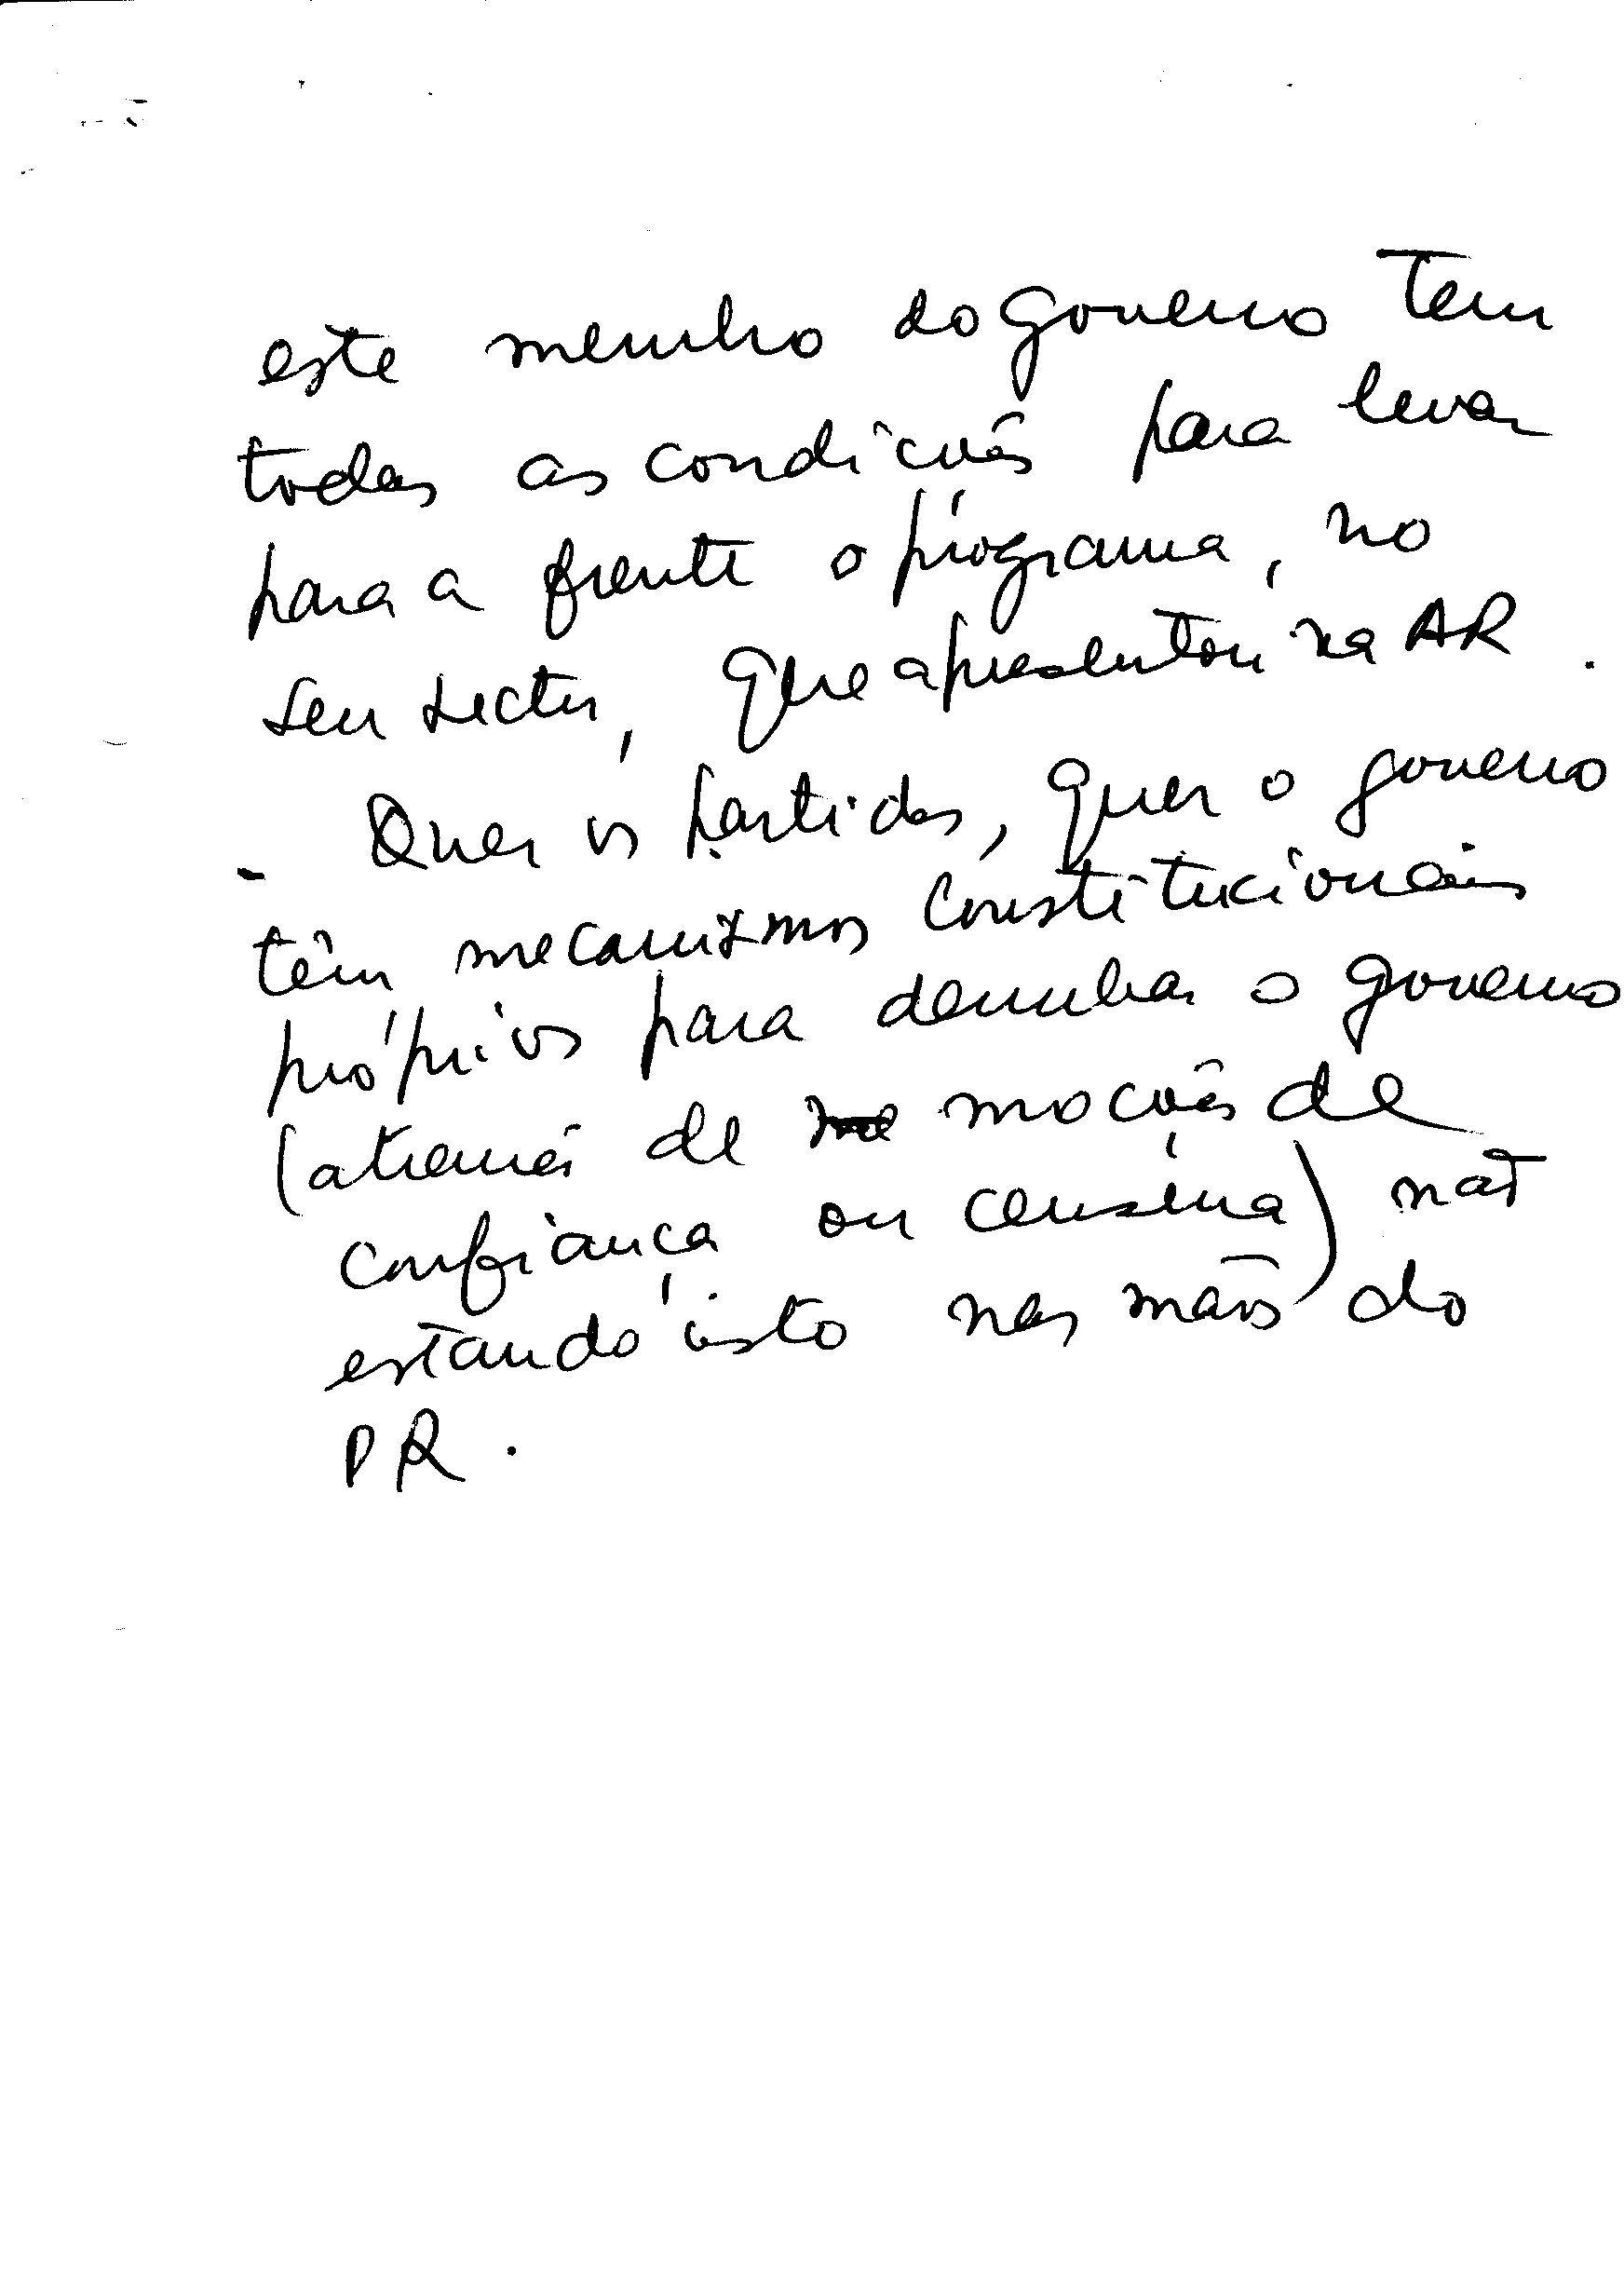 este membro do governo tem
todas as condições para levar
para a frente o programa, no
seu sector, que apresentou na AR.
- Quer os partidos, quer o governo
têm mecanismos constitucionais
próprios para derrubar o governo
(através de moções de
confiança ou censura) não
estando isto nas mãos do
PR.